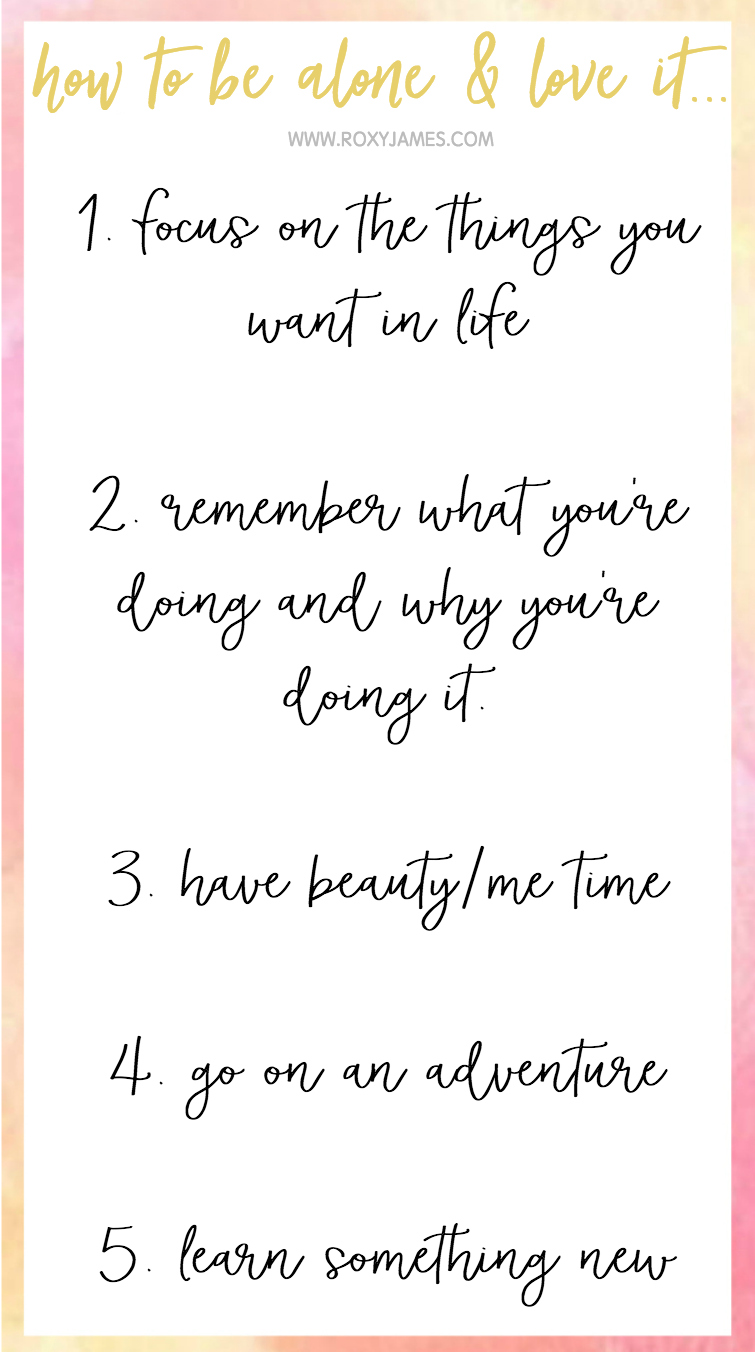 how to be alone & love it...
WWW.ROXYJAMES.COM
1. focus on the things you
want in life
2. remember what you're
doing and why you're
doing it.
3. have beauty/me time
4. go on an adventure
5. learn something new